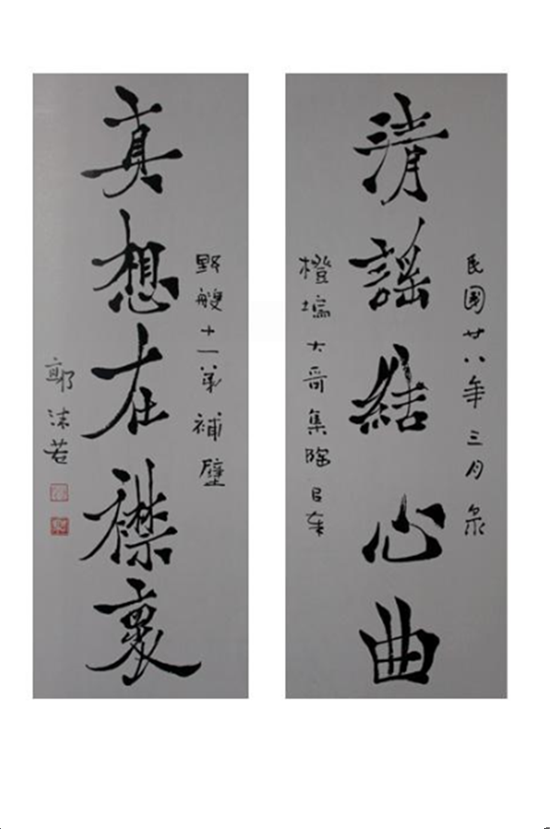 民國廿八年三月录
清謠結心曲
橙塢大哥集陶㠯奉
野艘十一弟補壁
真想在襟裏
郭沫若